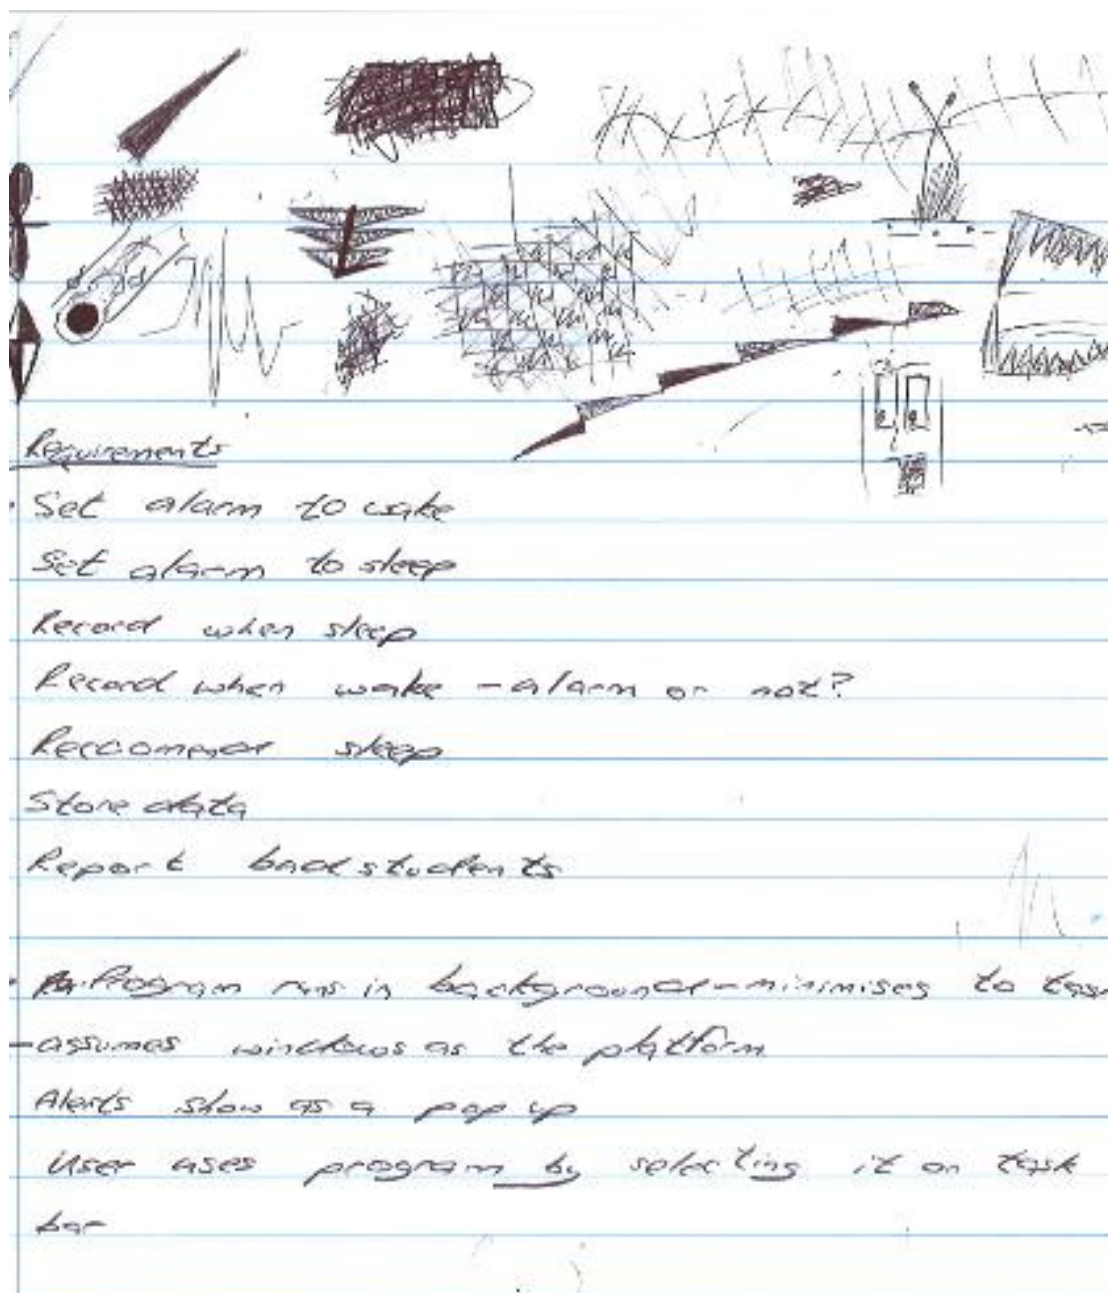 Requirements
Set alarm to wake
Set alarm to sleep
Record when sleep
Record when wake - alarm or not?
Reccomend sleep
Store data
Report back students
Program runs in background - minimises to tas
- assumes windows as the platform
Alerts show as a pop up
User uses program by selecting it on task
bar